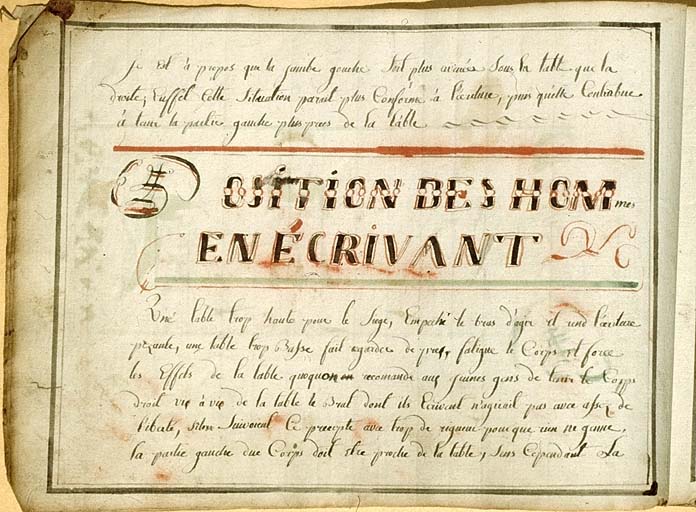 Il Est à propos que la jambe gauche soit plus avancée sous la table que la
droite, Eneffet Cette Situation parait plus Conforme à l'écriture, puis quelle Contribue
à tenir la partie gauche plus près de la table
POSITION DES HOMmes
EN ÉCRIVANT
Une table trop haute pour le Siege, Empeche le bras d'agir il rend l'écriture
pezante, une table trop Basse fait regarder de prest, fatigue le Corps et force
les Effets de la table quoiquon recomande aux jeunes gens de tenir le Corps
droit vis à vis de la table le Bras dont ils Ecrivent n'agiroit pas avec assez de
liberté, silon Suivoient Ce preceyte avec trop de rigueur pour que rien ne gaine,
la partie gauche due Corps doit etre proche de la table, sans Cependant La